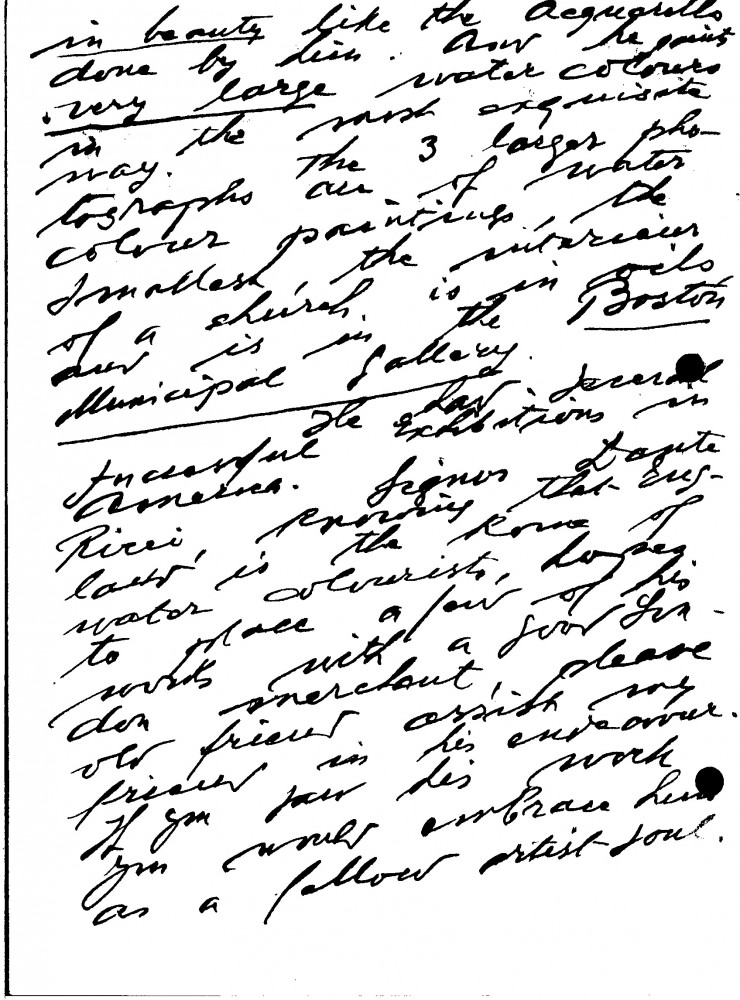 in beauty like the Acquarells
done by him. And he paints
very large water colours
in the most exquisite
way. The 3 larger pho-
tographs are of water
colour paintings, the
smallest, the interieur
of a church is in oils
and is in the Boston
Municipal Gallery.
He had several
successful exhibitions in
America. Signor Dante
Ricci, knowing that Eng-
land is the Rome of
water colourists, hopes
to place a few of his
works with a good Lon-
don merchant, please
old friend assist my
friend in his endeavour.
If you saw his work
you would embrace him
as a fellow artist-soul.